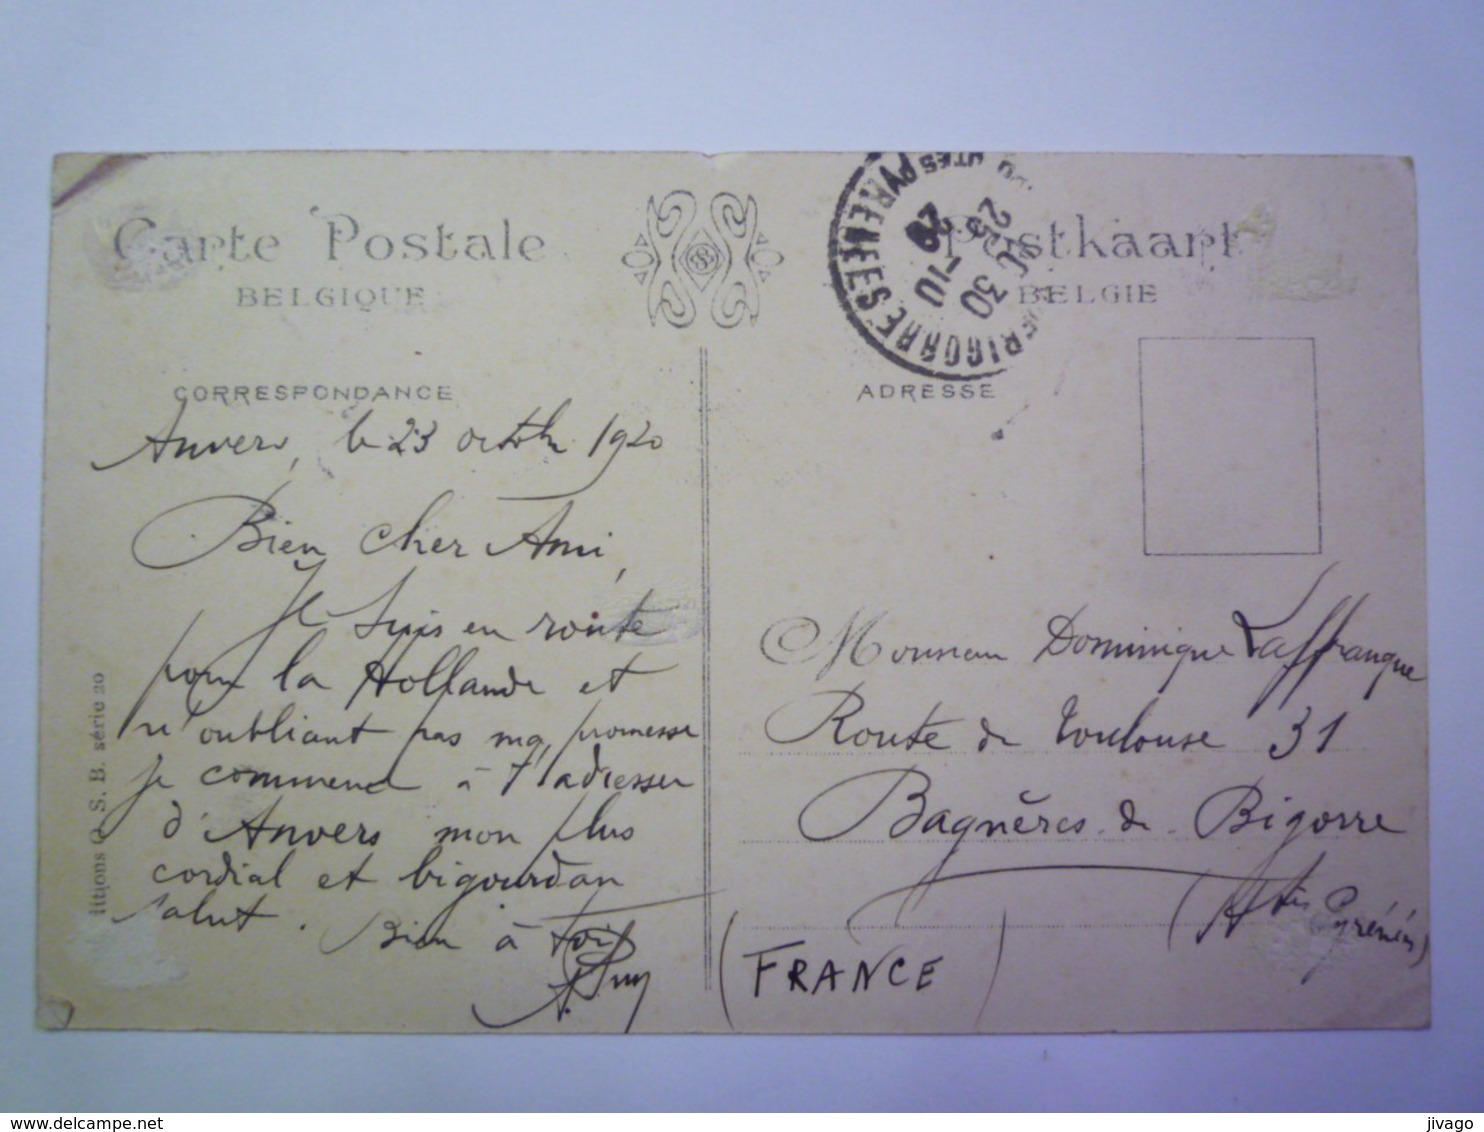 Carte Postale
BELGIQUE
Postkaart
BELGIE
CORRESPONDANCE
ADRESSE
BAGNERES DE BIGORRE HTES PYRENEES
25 - 10 20
Anvers, le 23 octobre 1920
Bien cher Ami,
Je suis en route
pour la Hollande et
n'oubliant pas ma promesse
je commence à t'adresser
d'Anvers mon plus
cordial et bigourdan
salut. Bien à toi
Monsieur Dominique Laffranque
Route de Toulouse 31
Bagnères de Bigorre
(Htes Pyrénées)
(FRANCE)
Editions O. S. B. série 20
jivago
www.delcampe.net